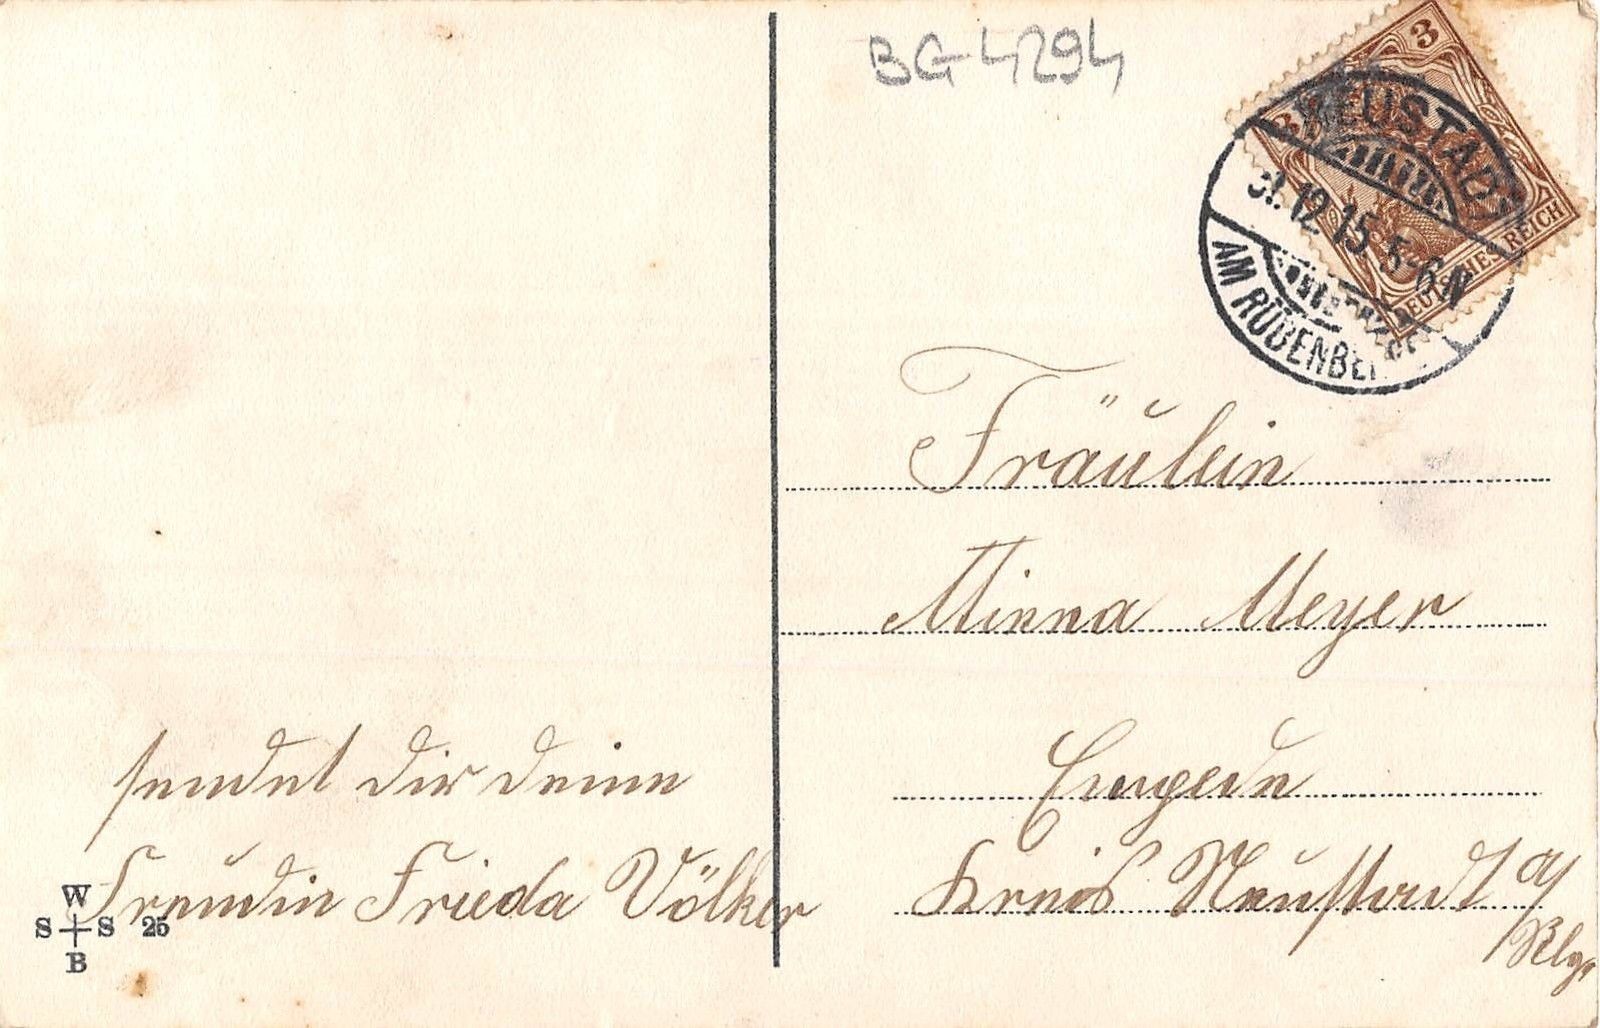 BG 4294
3
3
DEUTSCHES REICH
NEUSTADT
31.12.15. 5-6 N
AM RÜBENBERGE
Fräulein
Minna Meyer
Empede
Kreis Neustadt a/
Rbge
sendet dir deine
Freundin Frieda Völker
W
S S 25
B